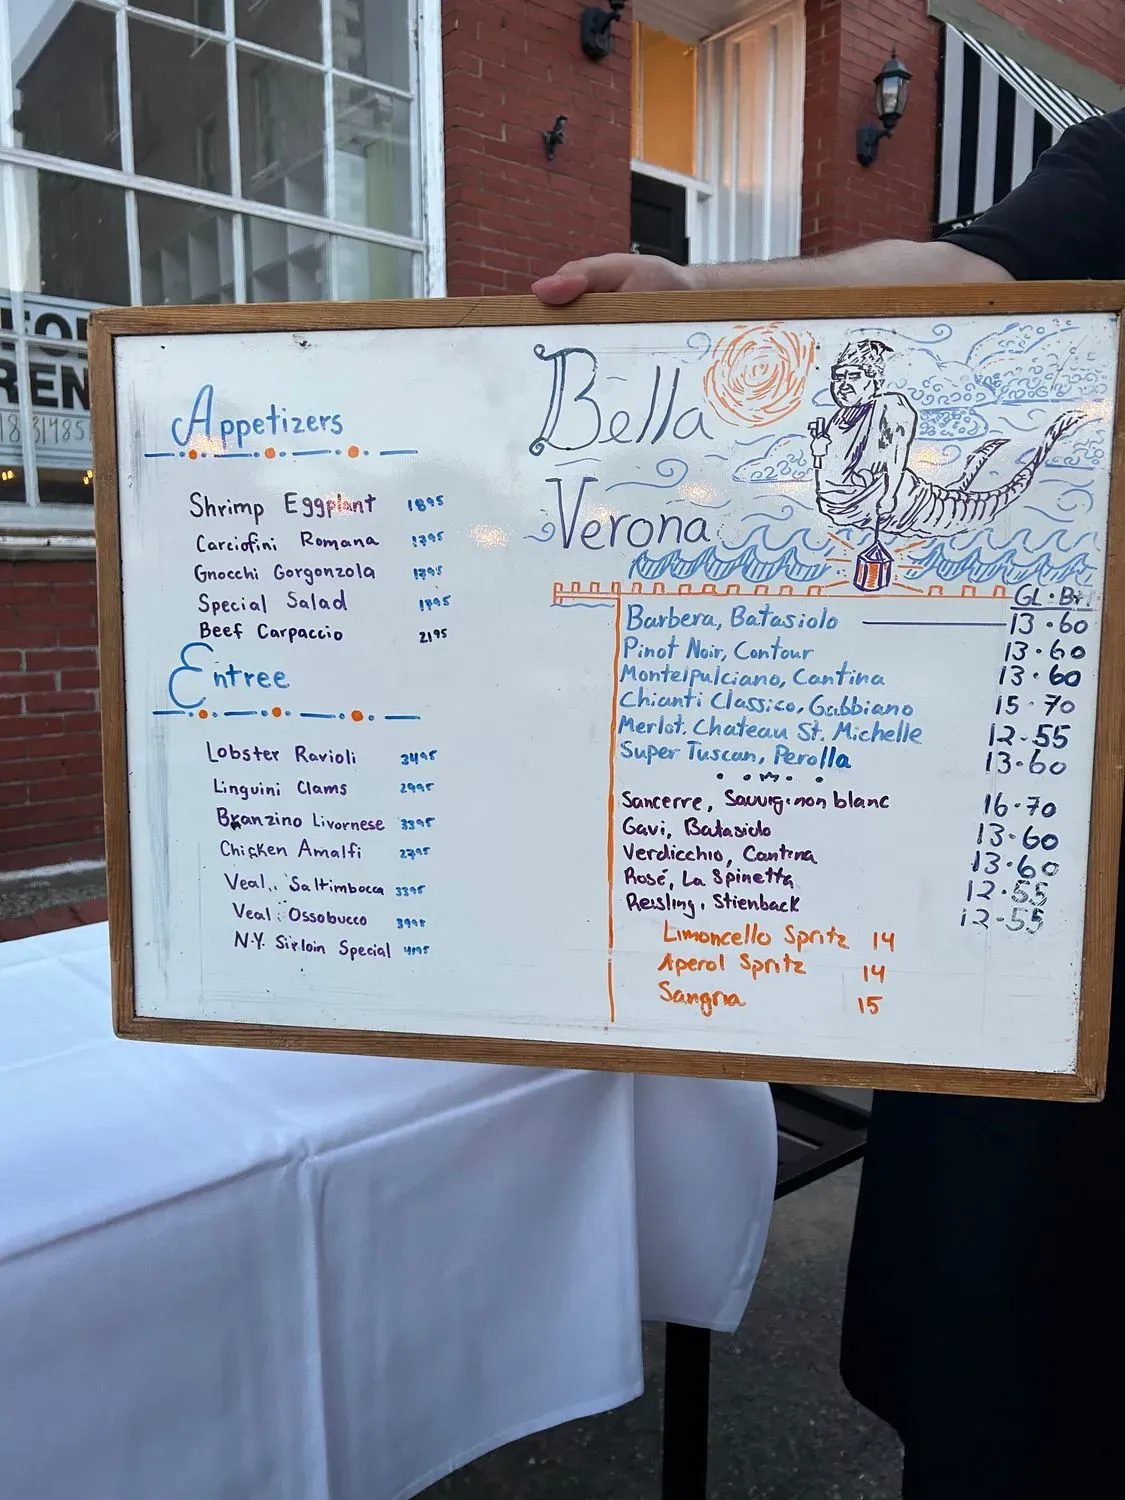 FOR
REN
Appetizers
Shrimp Eggplant 18⁹⁵
Carciofini Romana 17⁹⁵
Gnocchi Gorgonzola 17⁹⁵
Special Salad
Beef Carpaccio 21⁹⁵
Entree
Lobster Ravioli 34⁹⁵
Linguini Clams 29⁹⁵
Branzino Livornese 33⁹⁵
Chicken Amalfi 27⁹⁵
Veal.. Saltimbocca 33⁹⁵
Veal. Ossobucco 39⁹⁵
N.Y. Sirloin Special 41⁹⁵
Bella
Verona
GL. Bt.
Barbera, Batasiolo 13.60
Pinot Noir, Contour 13.60
Montelpulciano, Cantina 13.60
Chianti Classico, Gabbiano 15.70
Merlot. Chateau St. Michelle 12.55
Super Tuscan, Perolla 13.60
Sancerre, Sauvignon blanc 16.70
Gavi, Batasiolo 13.60
Verdicchio, Cantina 13.60
Rosé, La Spinetta 12.55
Reisling, Stienback 12.55
Limoncello Spritz 14
Aperol Spritz 14
Sangria 15